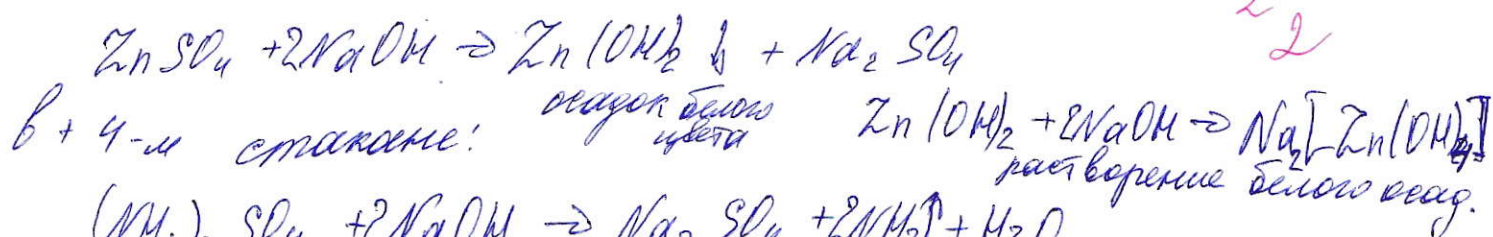 2
2
ZnSO₄ + 2NaOH → Zn(OH)₂ ↓ + Na₂SO₄
осадок белого цвета
Zn(OH)₂ + 2NaOH → Na₂[Zn(OH)₄]
растворение белого осад.
в + 4-м стакане:
(NH₄)₂SO₄ + 2NaOH → Na₂SO₄ + 2NH₃↑ + H₂O